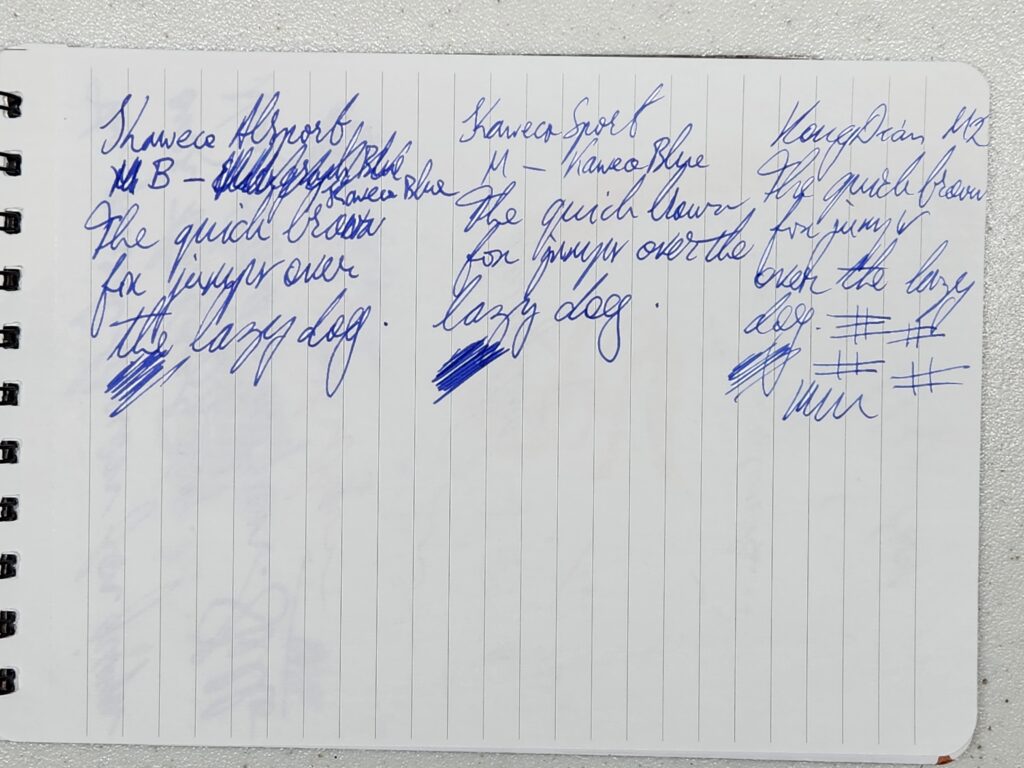 Kaweco AlSport
B – Blue
Kaweco Blue
The quick brown
fox jumps over
the lazy dog.
Kaweco Sport
M – Kaweco Blue
The quick brown
fox jumps over the
lazy dog.
HongDian M2
The quick brown
fox jumps
over the lazy
dog.